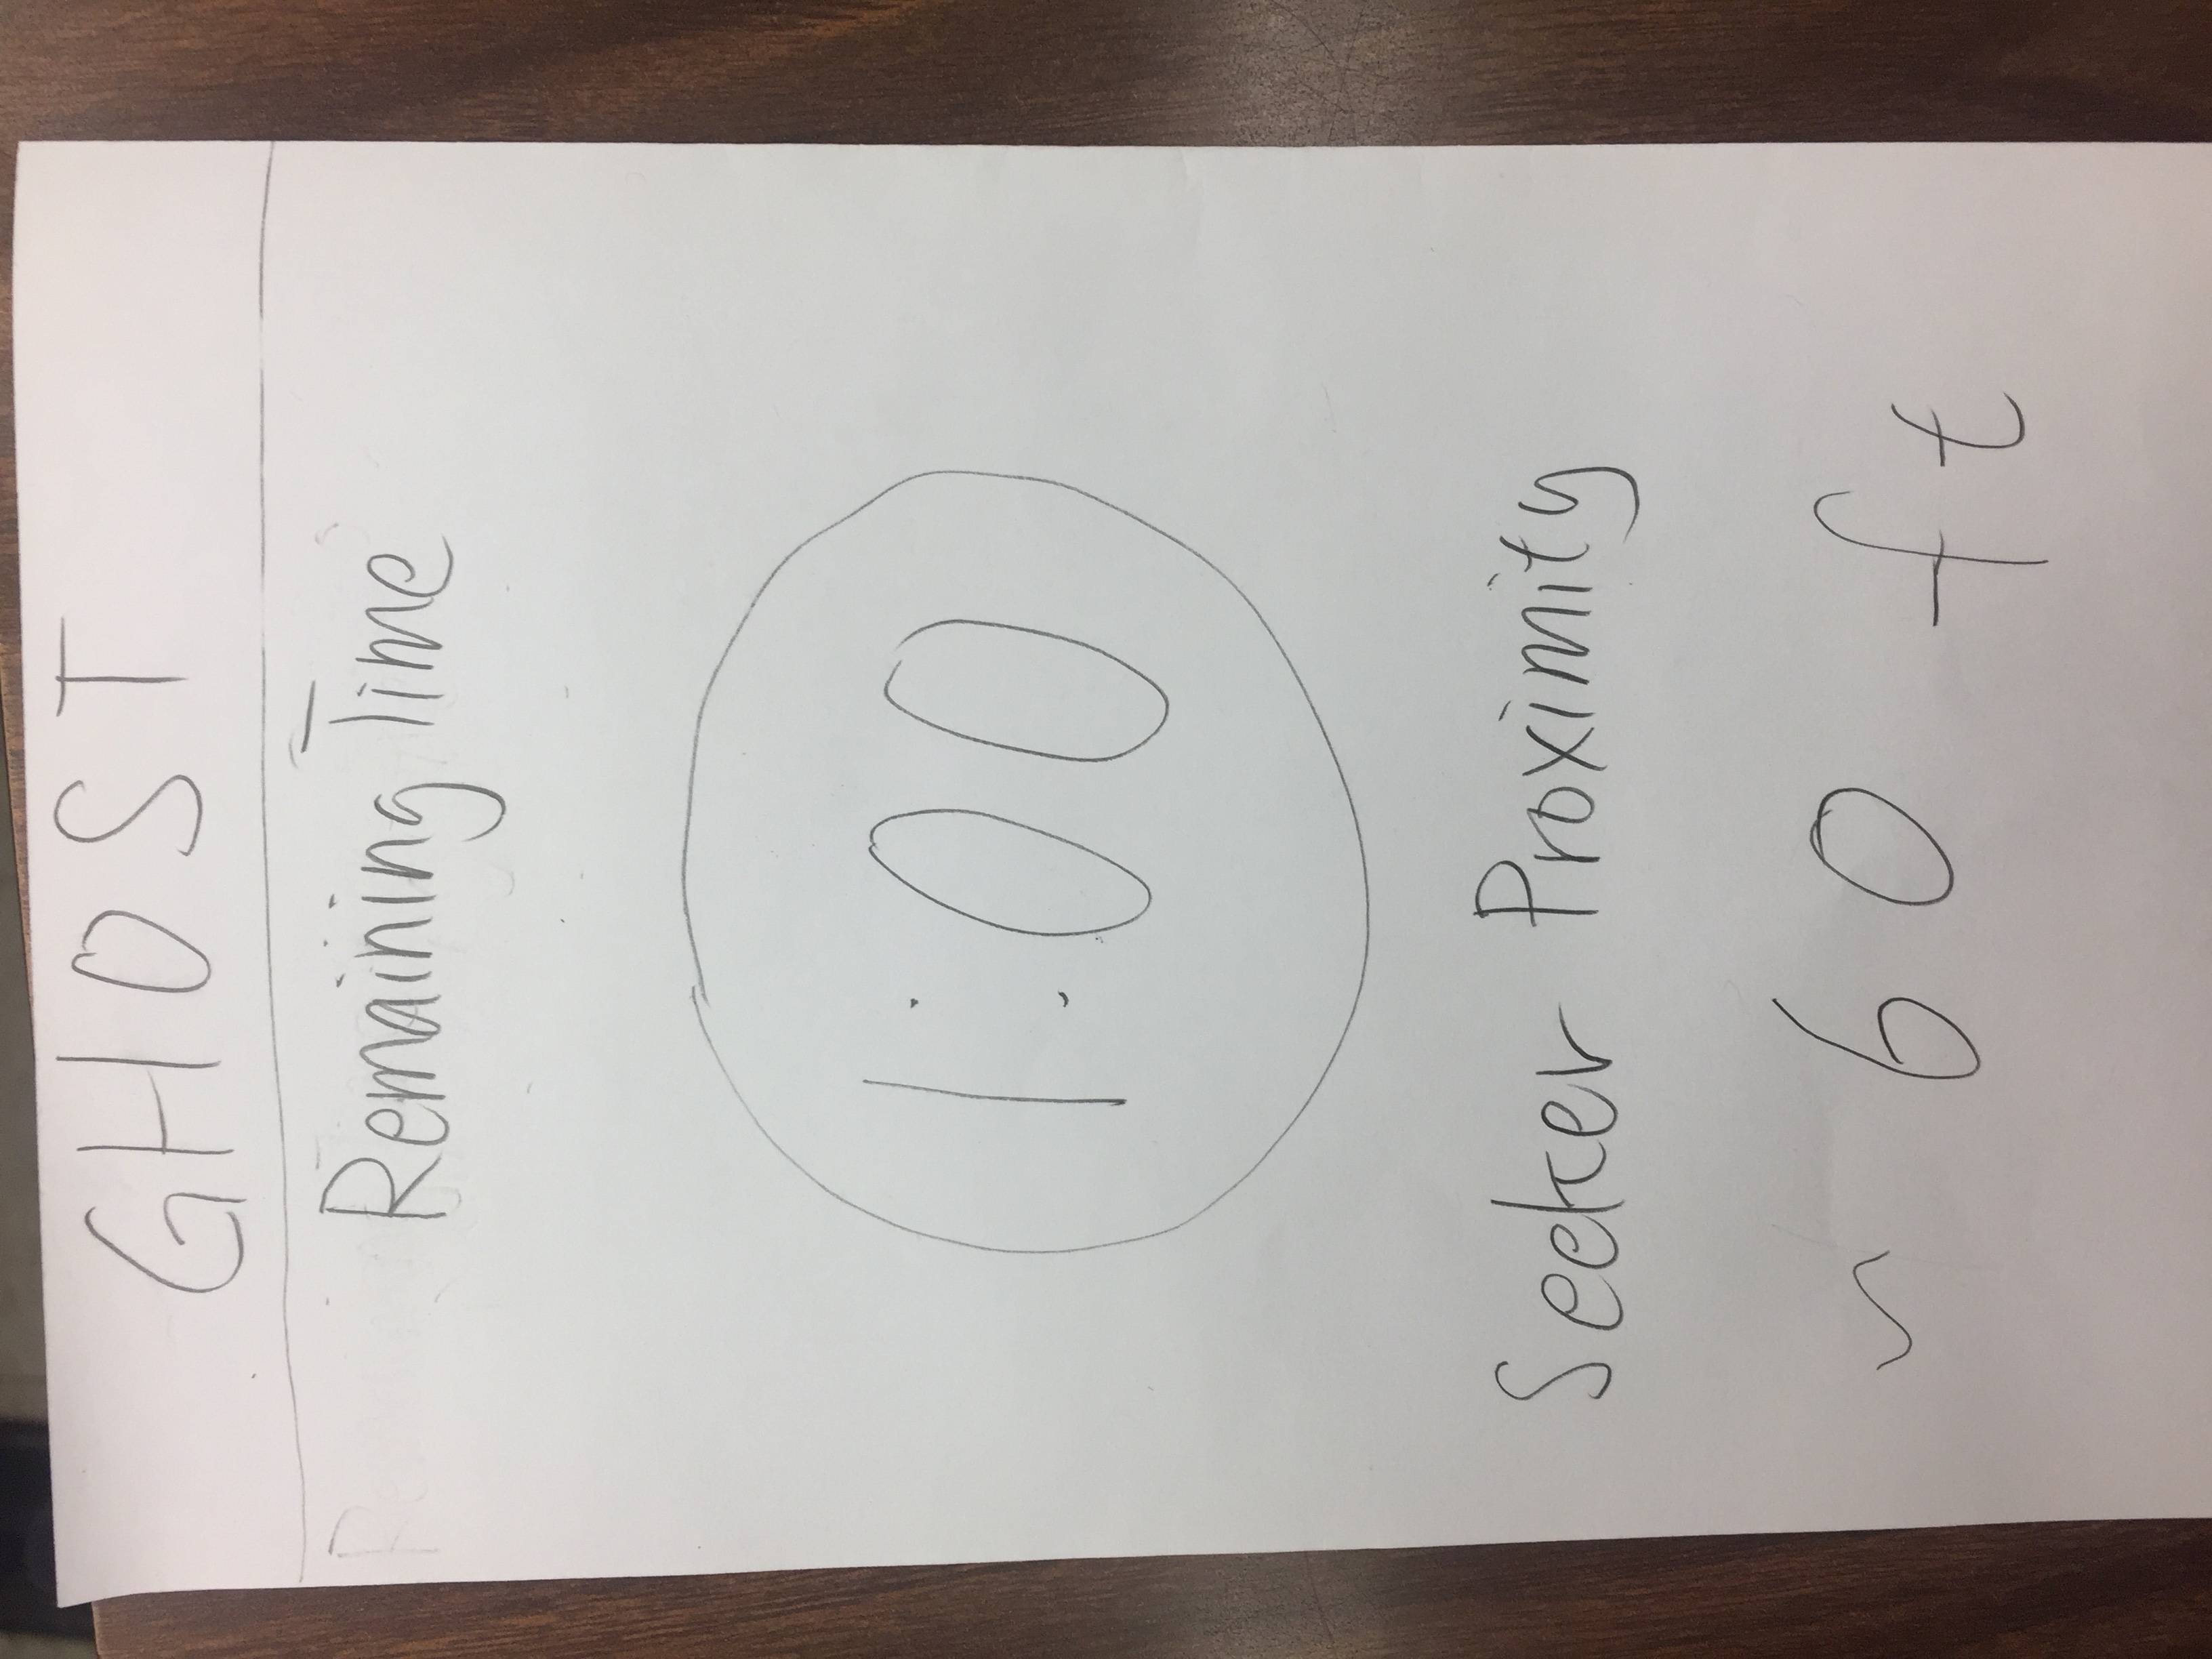 GHOST
Remaining Time
1:00
Seeker Proximity
~ 60 ft